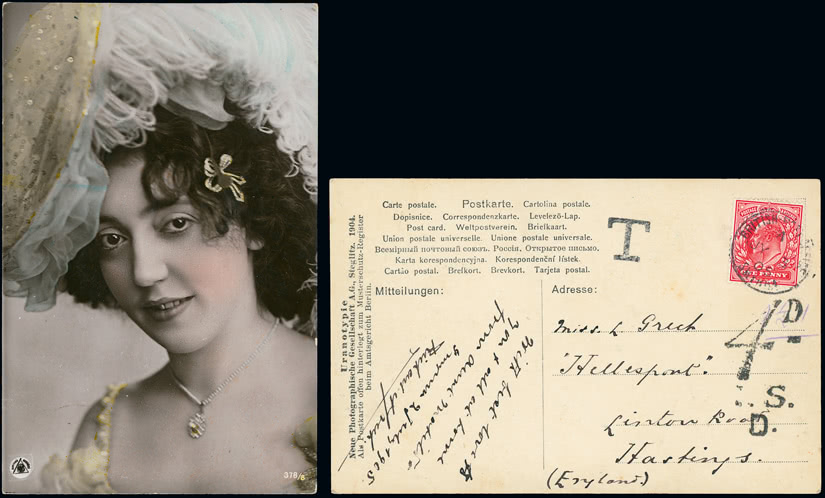 378/6
Carte postale. Postkarte. Cartolina postale.
Dopisnice. Correspondenzkarte. Levelező-Lap.
Post card. Weltpostverein. Briefkaart.
Union postale universelle. Unione postale universale.
Всемірный почтовый союзъ. Россія. Открытое письмо.
Karta korespondencyjna. Korespondenční lístek.
Cartão postal. Brefkort. Brevkort. Tarjeta postal.
Mitteilungen:
Adresse:
Uranotypie
Neue Photographische Gesellschaft A.G., Steglitz. 1904.
Als Postkarte offen hinterlegt zum Musterschutz-Register
beim Amtsgericht Berlin.
With best love to
You & all at home
from
Smyrna 2 July 1905
T
ONE PENNY
4D.
S.
D.
Miss L Grech
"Hellespont"
Linton Road
Hastings.
(England)